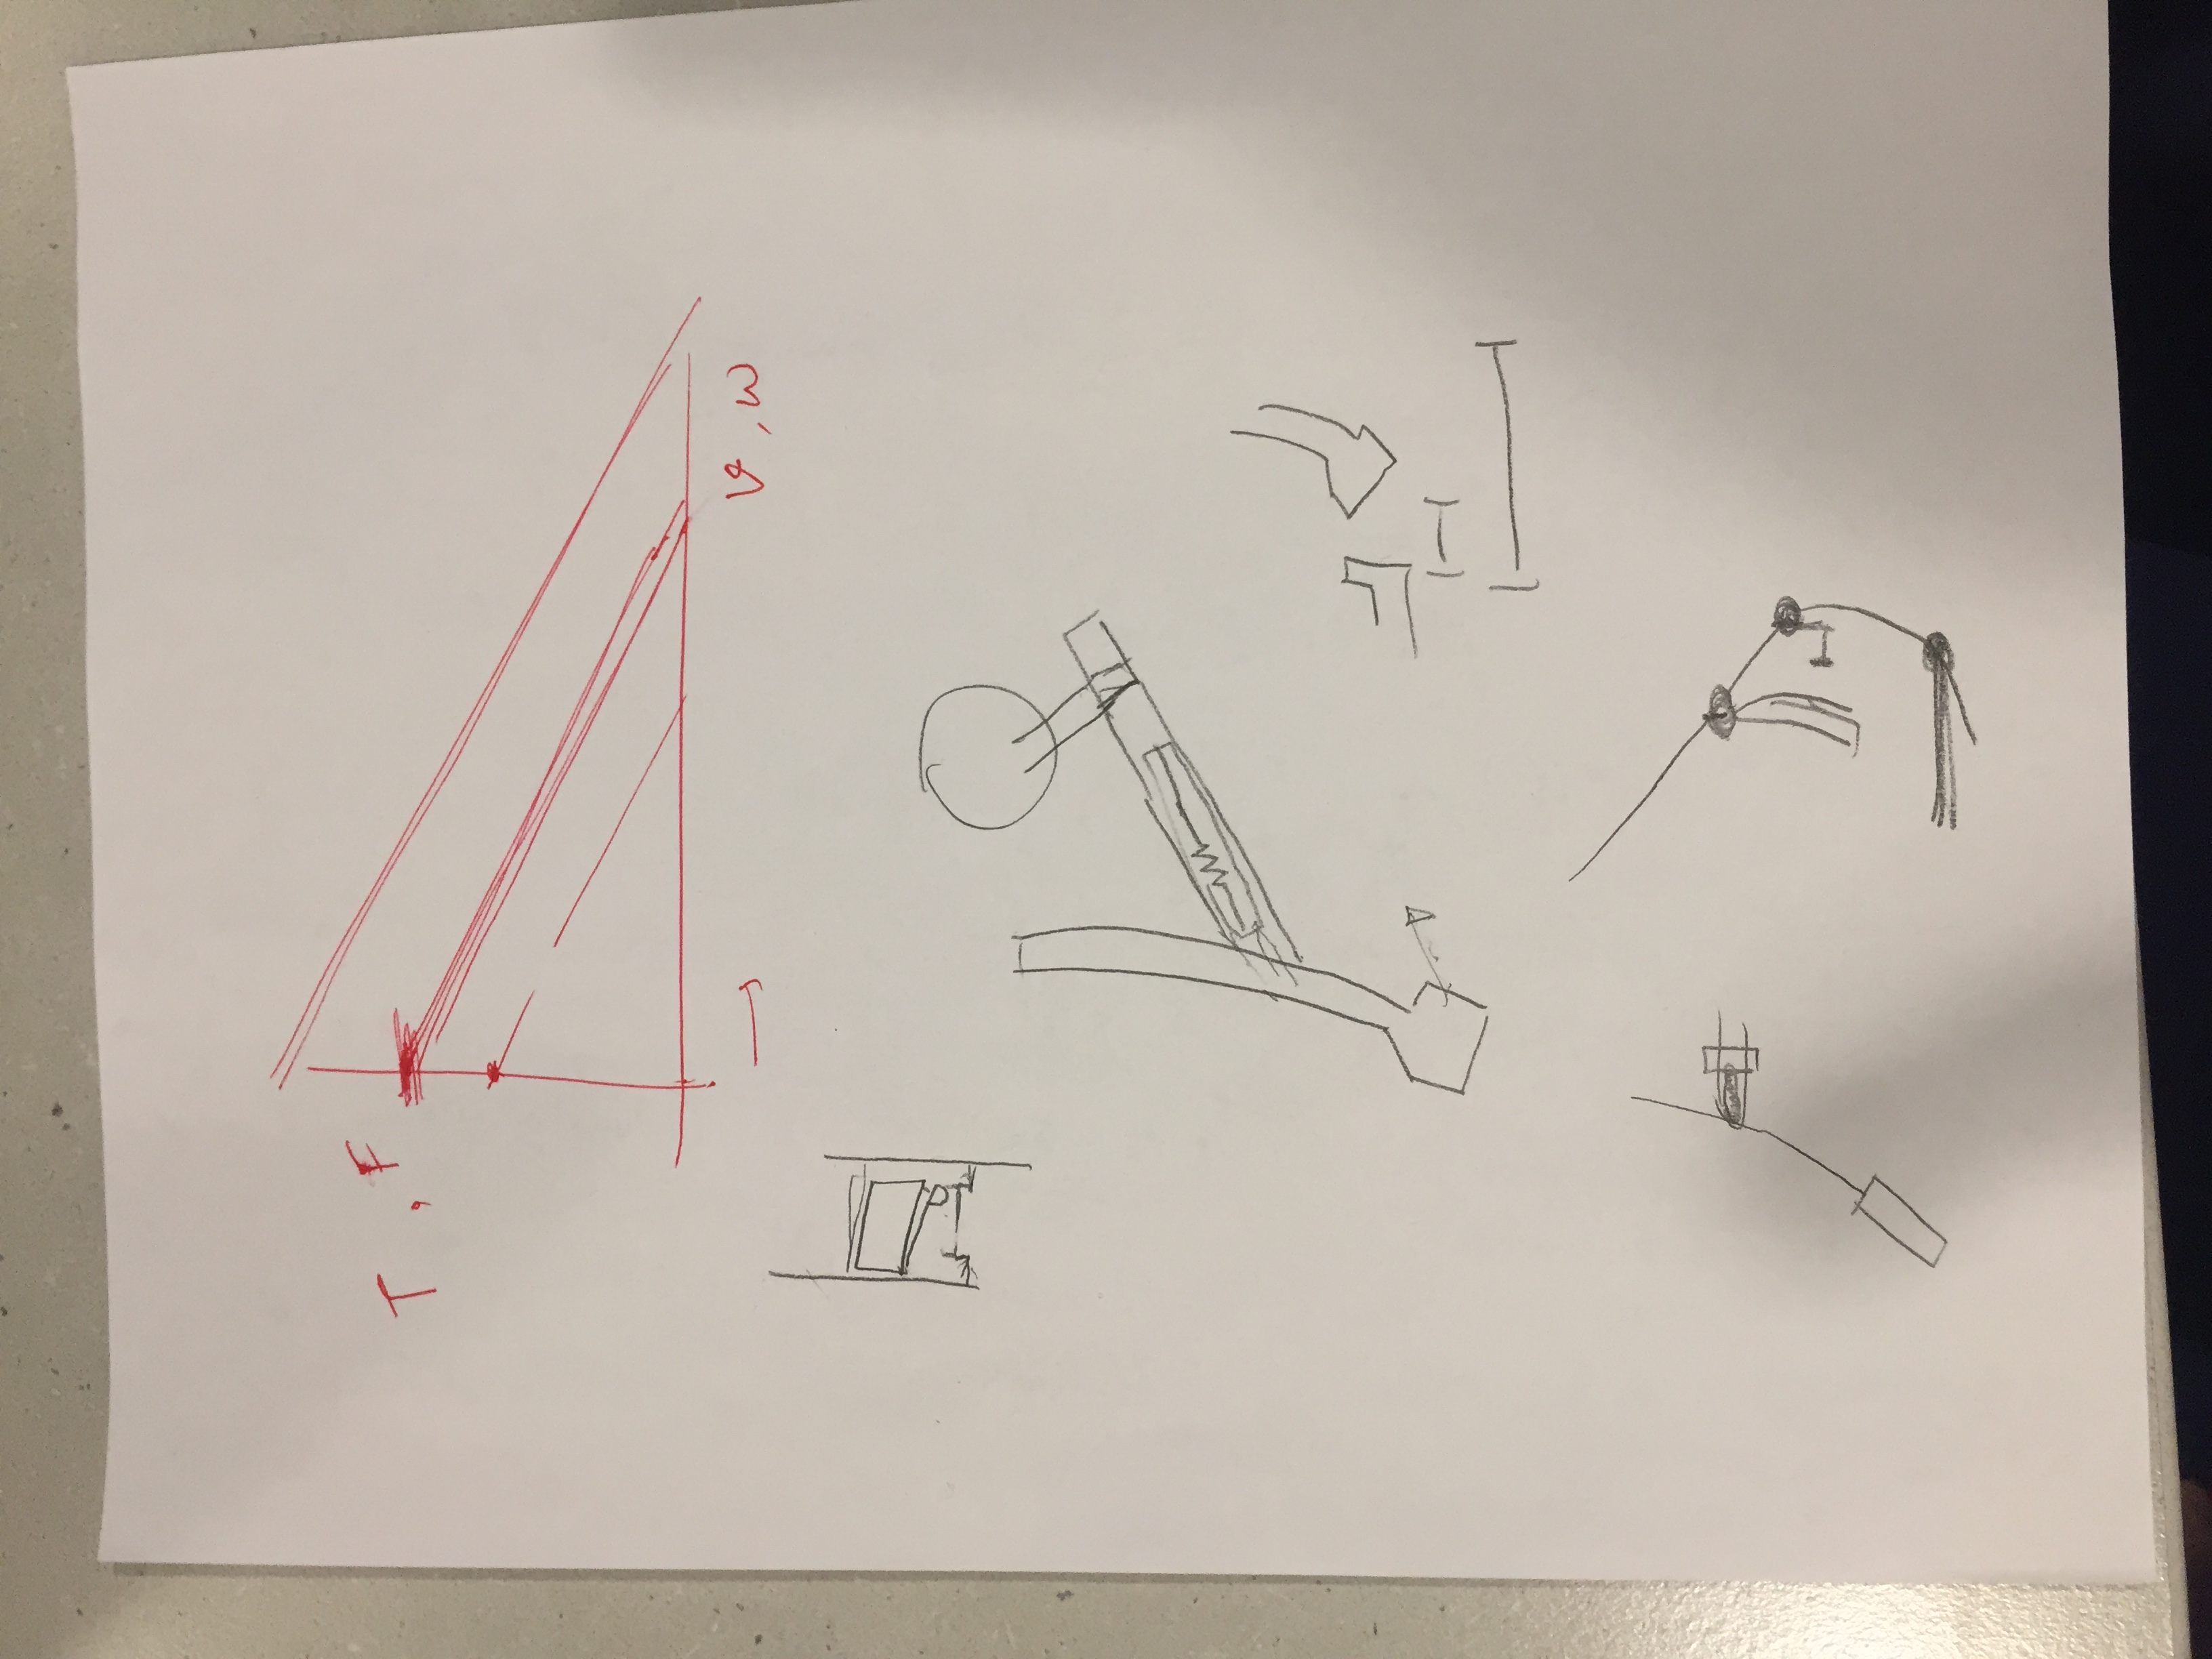 T , F
v, ω